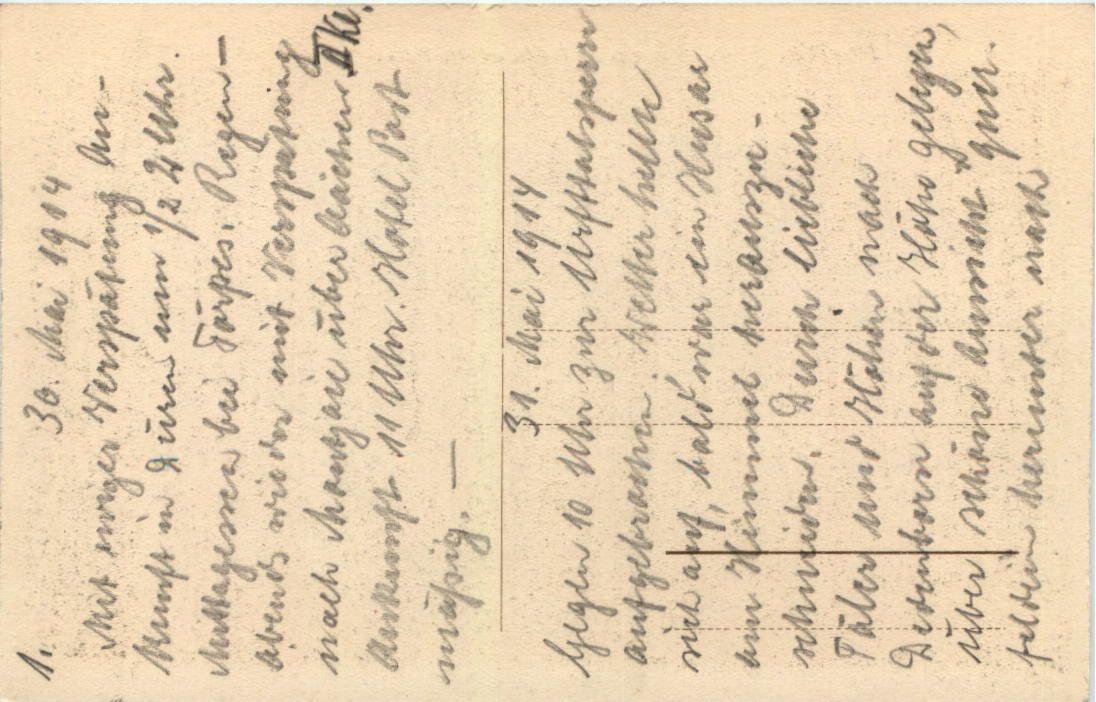 1.
30. Mai 1914
Mit einiger Verspätung An-
kunft in Düren um 1/2 2 Uhr.
Mittagessen bei Törpes. Regen –
abends wieder mit Verspätung
nach Montjoie über Aachen II Kl.
Ankunft 11 Uhr. Hotel Post
mäßig. —
31. Mai 1914
Gegen 10 Uhr zur Urfttalsperre
aufgebrochen Wetter hellte
sich auf, bald war ein Husar
am Himmel herauszu-
schneiden. Durch liebliche
Täler und Höhen nach
Dedenborn auf der Höhe gelegen,
über schöne Aussicht
felder herunter nach